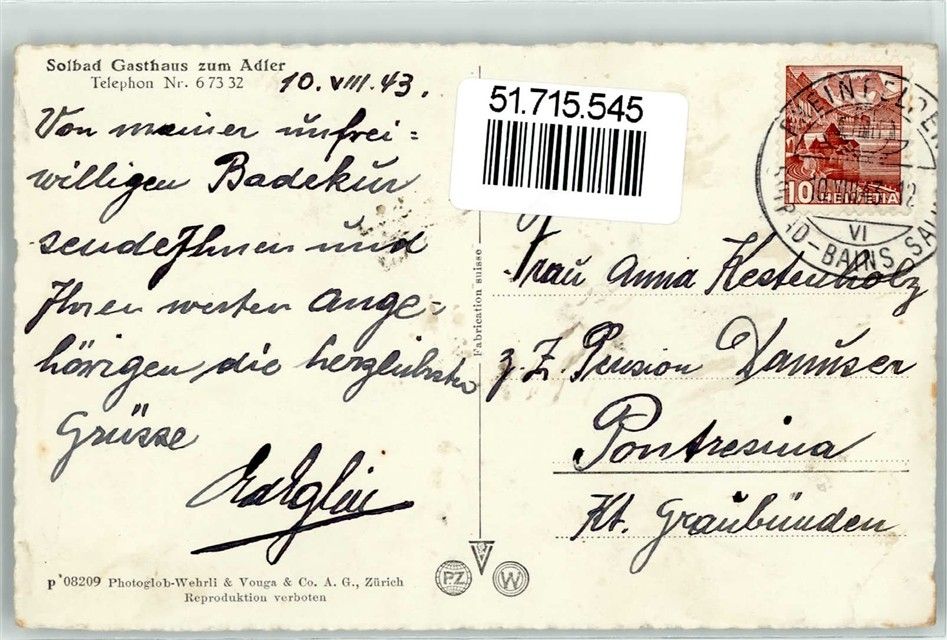 Solbad Gasthaus zum Adler
Telephon Nr. 6 73 32
10. VIII. 43.
Von meiner unfrei=
willigen Badekur
sende Ihnen und
Ihren werten Ange-
hörigen die herzlichsten
Grüsse
51.715.545
RHEINFELDEN
10.VIII.43.-12
VI
BAINS SALINS
10 HELVETIA
Fabrication suisse
Frau Anna Kestenholz
z. Z. Pension Danuser
Pontresina
Kt. Graubünden
p 08209 Photoglob-Wehrli & Vouga & Co. A. G., Zürich
Reproduktion verboten
PZ V W